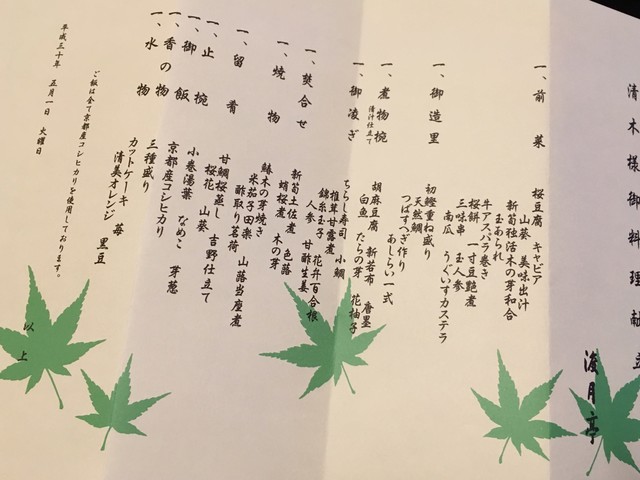 清木様御料理献立
渡月亭
一、前菜
桜豆腐 キャビア
山葵 美味出汁
新筍独活木の芽和合
玉あられ
牛アスパラ巻き
桜餅 一寸豆艶煮
三味串 玉人参
南瓜 うぐいすカステラ
一、御造里
初鰹重ね盛り
天然鯛 あしらい一式
つばすへぎ作り
一、煮物椀 清汁仕立て
胡麻豆腐 新若布 唐墨
白魚 たらの芽 花柚子
一、御凌ぎ
ちらし寿司 小鯛
椎茸甘露煮 花弁百合根
錦糸玉子 甘酢生姜
人参
一、焚合せ
新筍土佐煮 色蕗
蛸桜煮 木の芽
一、焼物
鰆木の芽焼き
米茄子田楽 山蕗当座煮
酢取り茗荷
一、留肴
甘鯛桜蒸し 吉野仕立て
桜花 山葵
一、止椀
小巻湯葉 なめこ 芽葱
一、御飯
京都産コシヒカリ
一、香の物
三種盛り
一、水物
カットケーキ 苺 黒豆
清美オレンジ
ご飯は全て京都産コシヒカリを使用しております。
平成三十年 五月一日 火曜日
以上